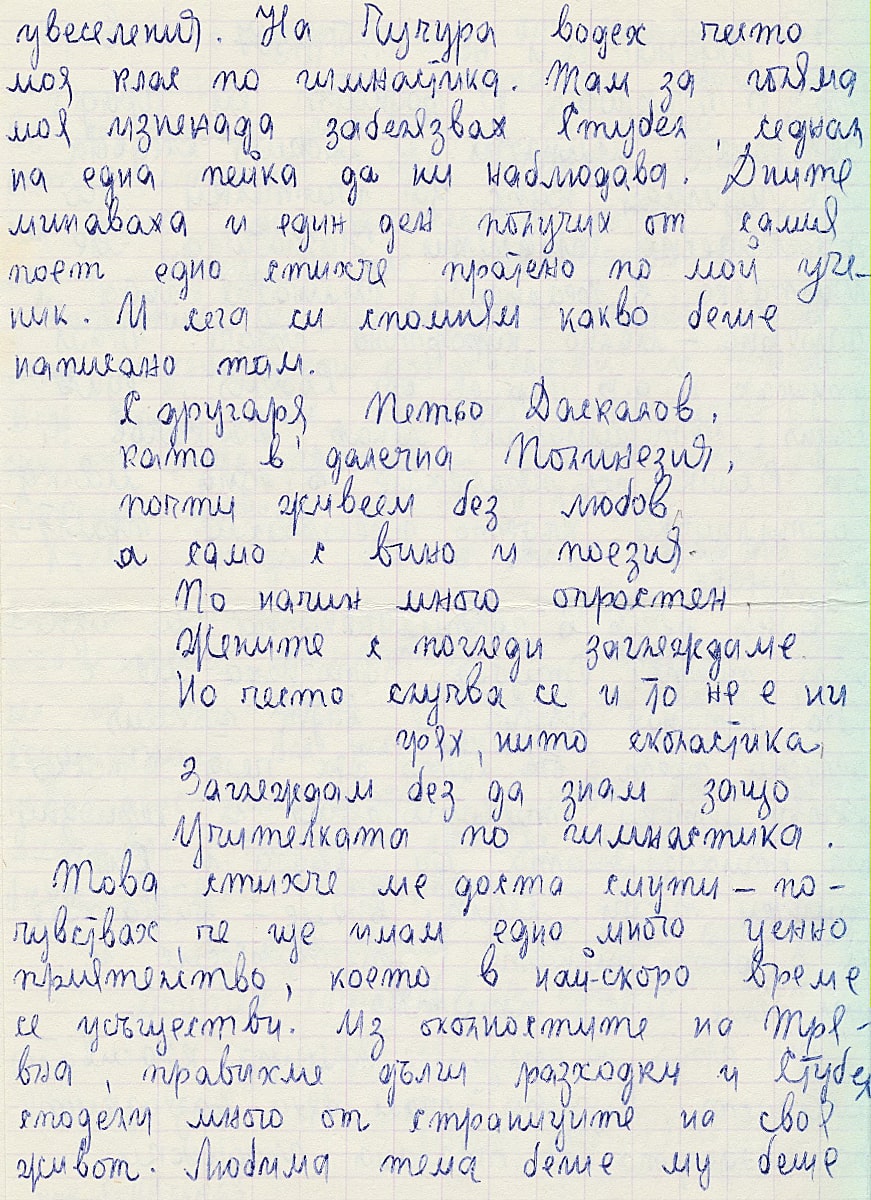 увеселения. На Кичура водех често
моя клас по гимнастика. Там за голяма
моя изненада забелязвах Стубел, седнал
на една пейка да ни наблюдава. Дните
минаваха и един ден получих от самия
поет едно стихче пратено по мой уче-
ник. И сега си спомням какво беше
написано там.
С другаря Петко Даскалов,
като в далечна Полинезия,
почти живеем без любов,
а само с вино и поезия.
По начин много опростен.
Жените с погледи заглеждаме
Но често случва се и то не е ни
грях, нито схоластика,
Заглеждам без да знам защо
Учителката по гимнастика.
Това стихче ме доста смути – по-
чувствах, че ще имам едно много ценно
приятелство, което в най-скоро време
се усъществи. Из околностите на Тре-
вна, правихме дълги разходки и Стубел
сподели много от страниците на своя
живот. Любима тема беше му беше